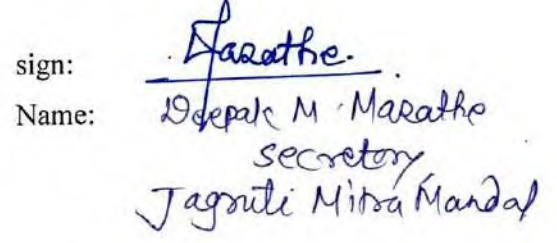 sign: Marathe.
Name: Deepak M. Marathe
Secretory,
Jagruti Mitra Mandal